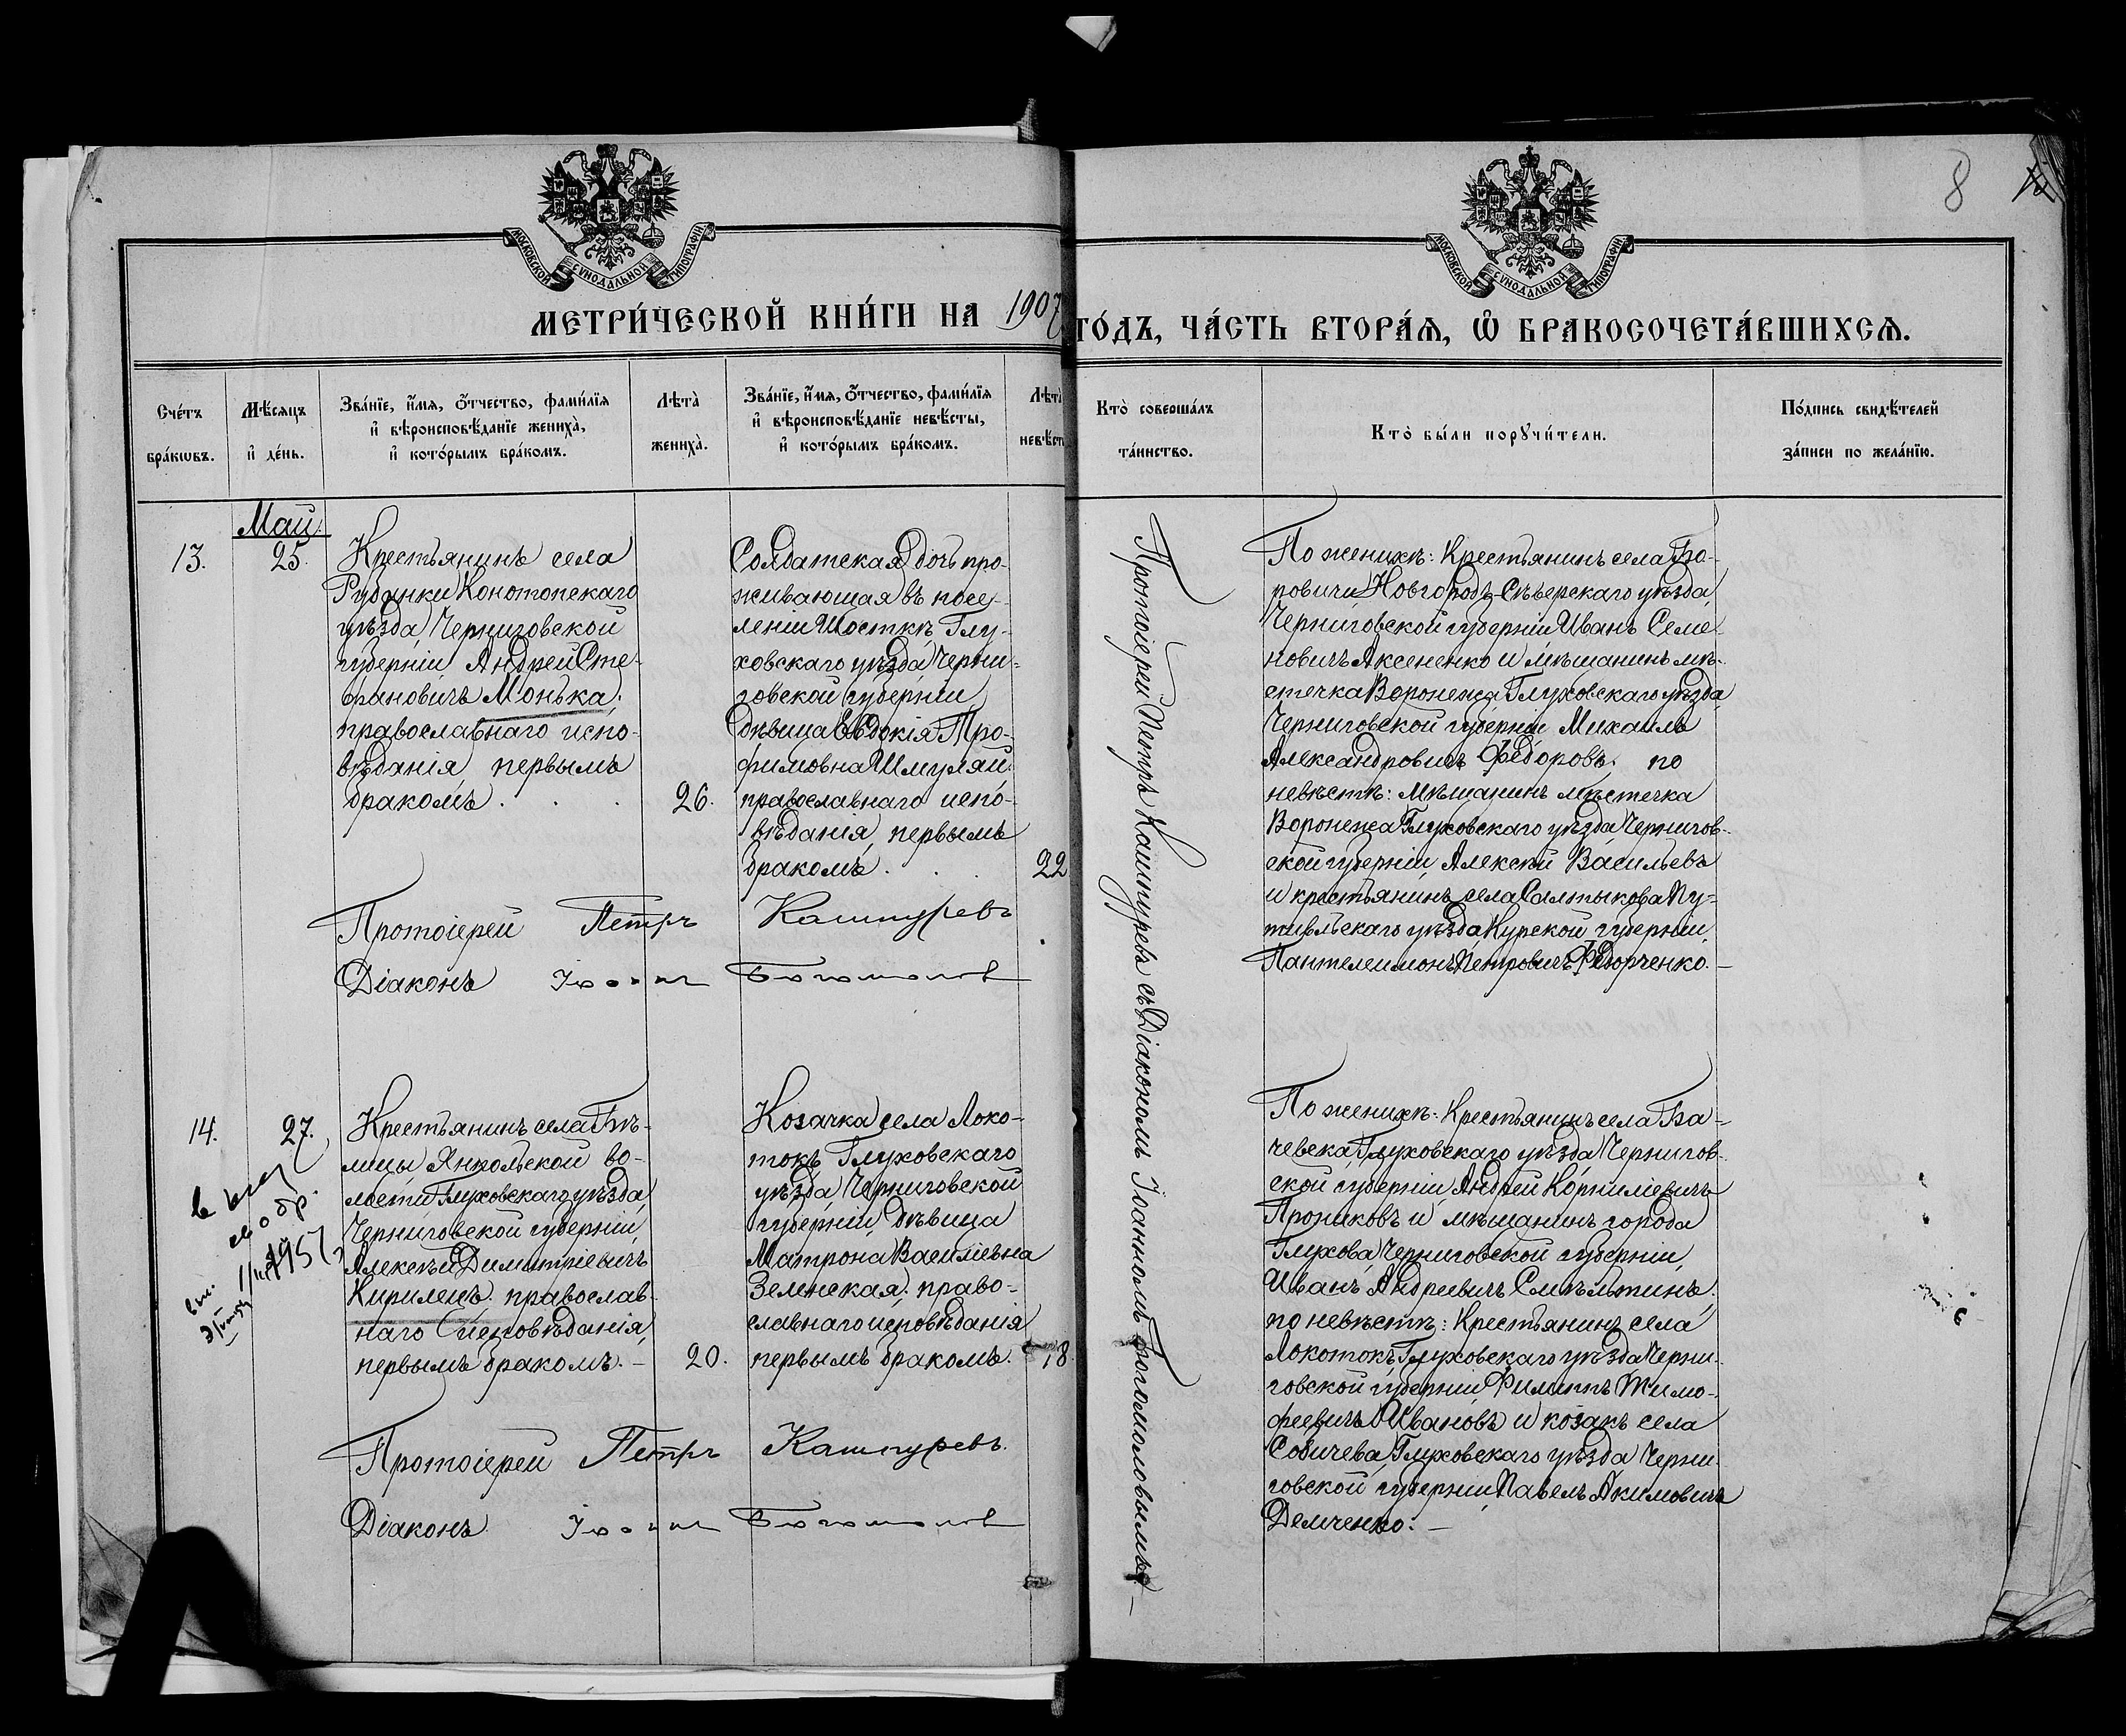 8
МОСКОВСКОЙ СУНОДАЛЬНОЙ ТИПОГРАФІИ
МОСКОВСКОЙ СУНОДАЛЬНОЙ ТИПОГРАФІИ
МЕТРИ́ЧЕСКОЙ КНИ́ГИ НА 1907
ГО́ДЪ, ЧА́СТЬ ВТОРА́Ѧ, Ѽ БРАКОСОЧЕТА́ВШИХСѦ.
Сче́тъ
бра́кѡвъ.
Мѣ́сѧцъ
и҆ де́нь.
Зва́нїе, и҆́мѧ, ѻ҆́тчество, фами́лїѧ
и҆ вѣроисповѣ́данїе жениха̀,
и҆ кото́рымъ бра́комъ.
Лѣта̀
жениха̀.
Зва́нїе, и҆́мѧ, ѻ҆́тчество, фами́лїѧ
и҆ вѣроисповѣ́данїе невѣ́сты,
и҆ кото́рымъ бра́комъ.
Лѣта̀
невѣ́ст
Кто̀ соверша́лъ
та́инство.
Кто̀ бы́ли порꙋчи́тели.
По́дпись свидѣ́телей
за́писи по жела́нїю.
Май.
13.
25.
Крестьянинъ села
Рубанки Конотопскаго
уѣзда Черниговской
губерніи Андрей Сте-
фановичъ Монька,
православнаго испо-
вѣданія первымъ
бракомъ.
26.
Солдатская дочь про-
живающая въ посе-
леніи Шосткѣ, Глу-
ховскаго уѣзда Черни-
говской губерніи,
дѣвица Евдокія Тро-
фимовна Шмуляй.
православнаго испо-
вѣданія, первымъ
бракомъ.
22
Протоіерей Петръ Кашпуревъ
Діаконъ Іоаннъ Богомолов
Протоіерей Петръ Кашпуревъ съ Діакономъ Іоанномъ Богомоловымъ.—
По женихѣ: Крестьянинъ села Бо-
ровичи, Новгородъ-Сѣверскаго уѣзда,
Черниговской губерніи Иванъ Семе-
новичъ Аксененко и мѣщанинъ мѣ-
стечка Воронежа Глуховскаго уѣзда
Черниговской губерніи Михаилъ
Александровичъ Федоровъ. по
невѣстѣ: мѣщанинъ мѣстечка
Воронежа Глуховскаго уѣзда Черниговъ-
ской губерніи, Алексѣй Васильевъ
и крестьянинъ села Салтыкова Пу-
тивльскаго уѣзда Курской губерніи,
Пантелеимонъ Петровичъ Федорченко.—
14.
27.
1957
Крестьянинъ села Бѣ-
лицы Янпольской во-
лости Глуховскаго уѣзда,
Черниговской губерніи,
Алексѣй Димитріевичъ
Кирилецъ. православ-
наго исповѣданія,
первымъ бракомъ.—
20.
Козачка села Локо-
токъ, Глуховскаго
уѣзда Черниговской
губерніи, дѣвица
Матрона Василіевна
Земнская, право-
славнаго исповѣданія
первымъ бракомъ.
18.
Протоіерей Петръ Кашпуревъ.
Діаконъ Іоаннъ Богомолов
По женихѣ: Крестьянинъ села Ба-
чевска, Глуховскаго уѣзда Чернигов-
ской губерніи, Андрей Корниліевичъ
Прониковъ и мѣщанинъ города
Глухова Черниговской губерніи,
Иванъ Андреевичъ Смѣльтинъ.
по невѣстѣ: Крестьянинъ села
Локотокъ, Глуховскаго уѣзда Черни-
говской губерніи Филиппъ Тимо-
феевичъ Ивановъ и козакъ села
Собичева, Глуховскаго уѣзда Черни-
говской губерніи, Павелъ Акимовичъ
Демченко.—